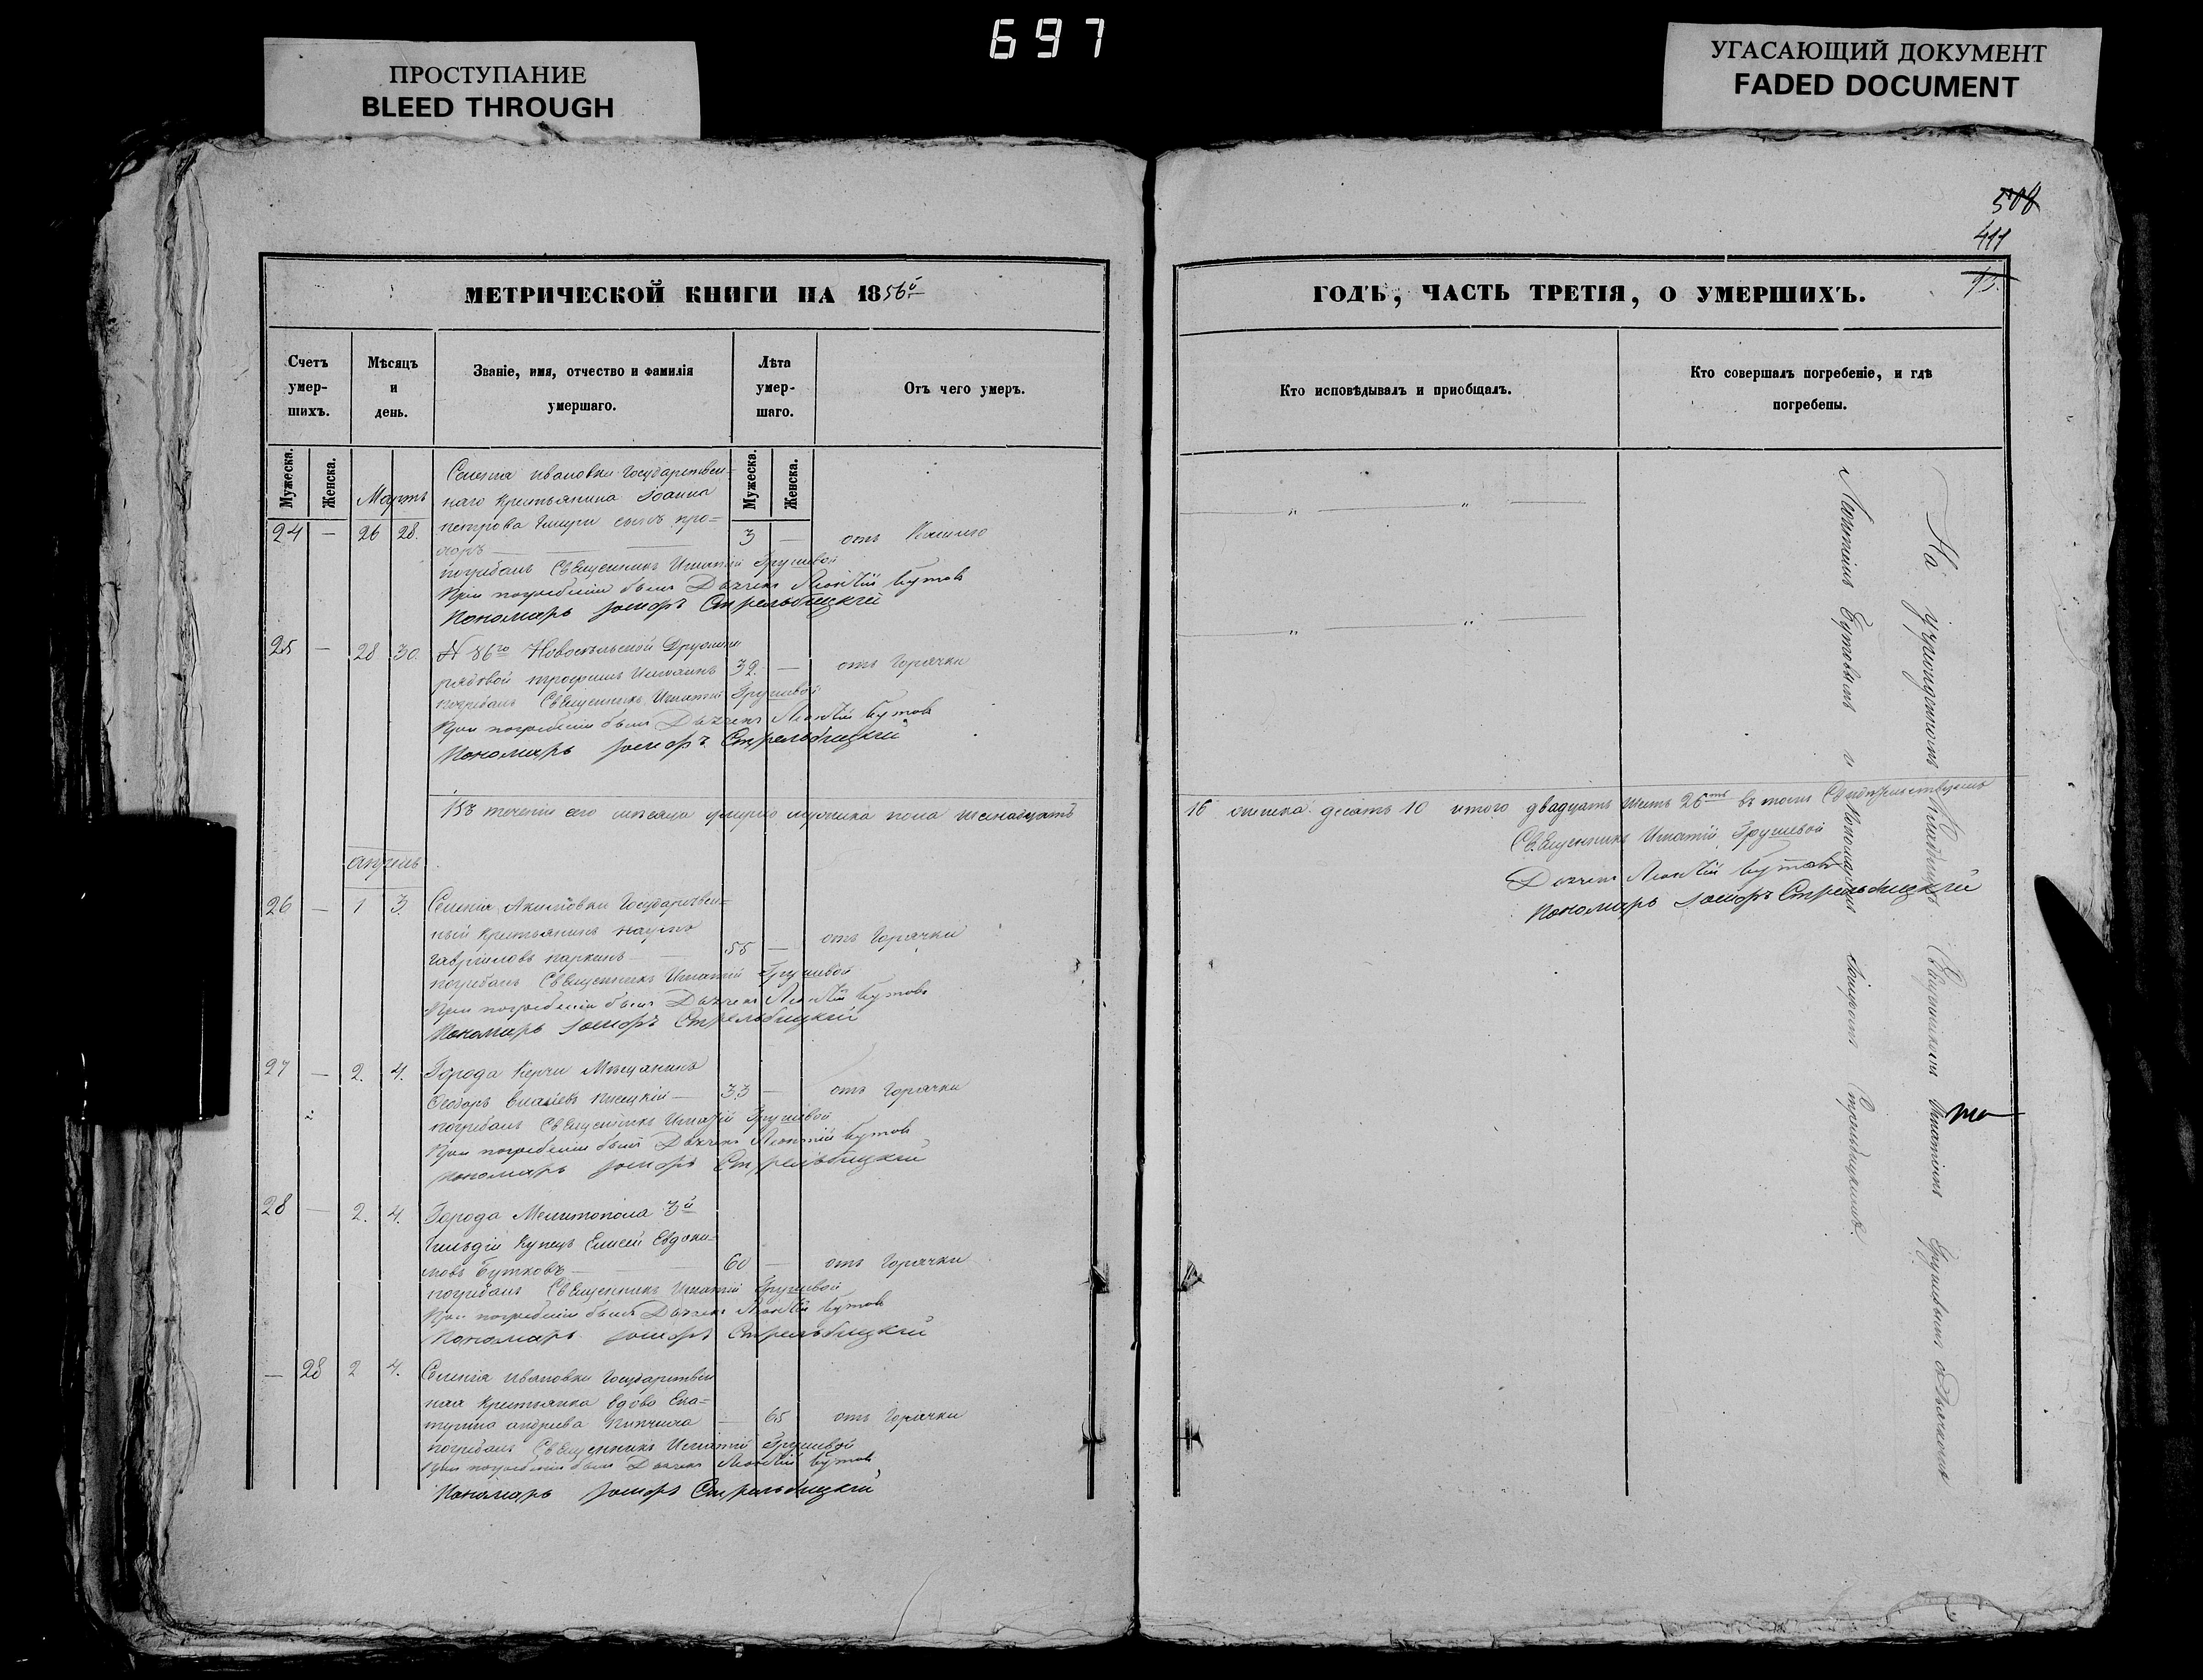 697
ПРОСТУПАНИЕ
BLEED THROUGH
УГАСАЮЩИЙ ДОКУМЕНТ
FADED DOCUMENT
508
411
93.
МЕТРИЧЕСКОЙ КНИГИ НА 1856й
Счетъ умер-шихъ.
Мѣсяцъ и день.
Званіе, имя, отчество и фамилія умершаго.
Лѣта умер-шаго.
Отъ чего умеръ.
Мужеска.
Женска.
Мужеска.
Женска.
Мартъ
Селенія Ивановки Государствен-
наго Крестьянина Іоанна
24 — 26 28. петрова сынъ про- 3 — отъ
хоръ
погребалъ Священникъ Игнатій Грушевой
При погребеніи былъ Дьячекъ Леонтій Бутовъ
Пономарь Іосифъ Стрельбицкій
25 — 28 30. № 86го Новосильской Дружины
рядовой трофимъ 32. — отъ Горячки
погребалъ Священникъ Игнатій Грушевой
При погребеніи былъ Дьячекъ Леонтій Бутовъ
Пономарь Іосифъ Стрельбицкій
Въ теченіи сего мѣсяца умерло мужеска пола шеснадцать
апрель
26 — 1 3. Селенія Акимовки Государствен-
ный Крестьянинъ наумъ
гавриловъ паркинъ — 55 — отъ Горячки
погребалъ Священникъ Игнатій Грушевой
При погребеніи былъ Дьячекъ Леонтій Бутовъ
Пономарь Іосифъ Стрельбицкій
27 — 2. 4. Города Керчи Мѣщанинъ
Феодоръ — 33 — отъ Горячки
погребалъ Священникъ Игнатій Грушевой
При погребеніи былъ Дьячекъ Леонтій Бутовъ
Пономарь Іосифъ Стрельбицкій
28 — 2. 4. Города Мелитополя 3й
Гильдіи Купецъ Елисей Евдоки-
мовъ Бутковъ — 60 — отъ Горячки
погребалъ Священникъ Игнатій Грушевой
При погребеніи былъ Дьячекъ Леонтій Бутовъ
Пономарь Іосифъ Стрельбицкій
— 28 2 4. Селенія Ивановки Государствен
ная Крестьянка вдова Ека-
терина андреева — 65 отъ Горячки
погребалъ Священникъ Игнатій Грушевой
При погребеніи былъ Дьячекъ Леонтій Бутовъ
Пономарь Іосифъ Стрельбицкій
ГОДЪ, ЧАСТЬ ТРЕТІЯ, О УМЕРШИХЪ.
Кто исповѣдывалъ и пріобщалъ.
Кто совершалъ погребеніе, и гдѣ погребены.
16 женска десять 10 итого двадцать шесть 26ть въ томъ Свидѣтельствуемъ
Священникъ Игнатій Грушевой
Дьячекъ Леонтій Бутовъ
Пономарь Іосифъ Стрельбицкій
На учрежденномъ Кладбищѣ Священникомъ Игнатіемъ Грушевымъ съ Дьячкомъ
Леонтіемъ Бутовымъ и Пономаремъ Іосифомъ Стрельбицкимъ.